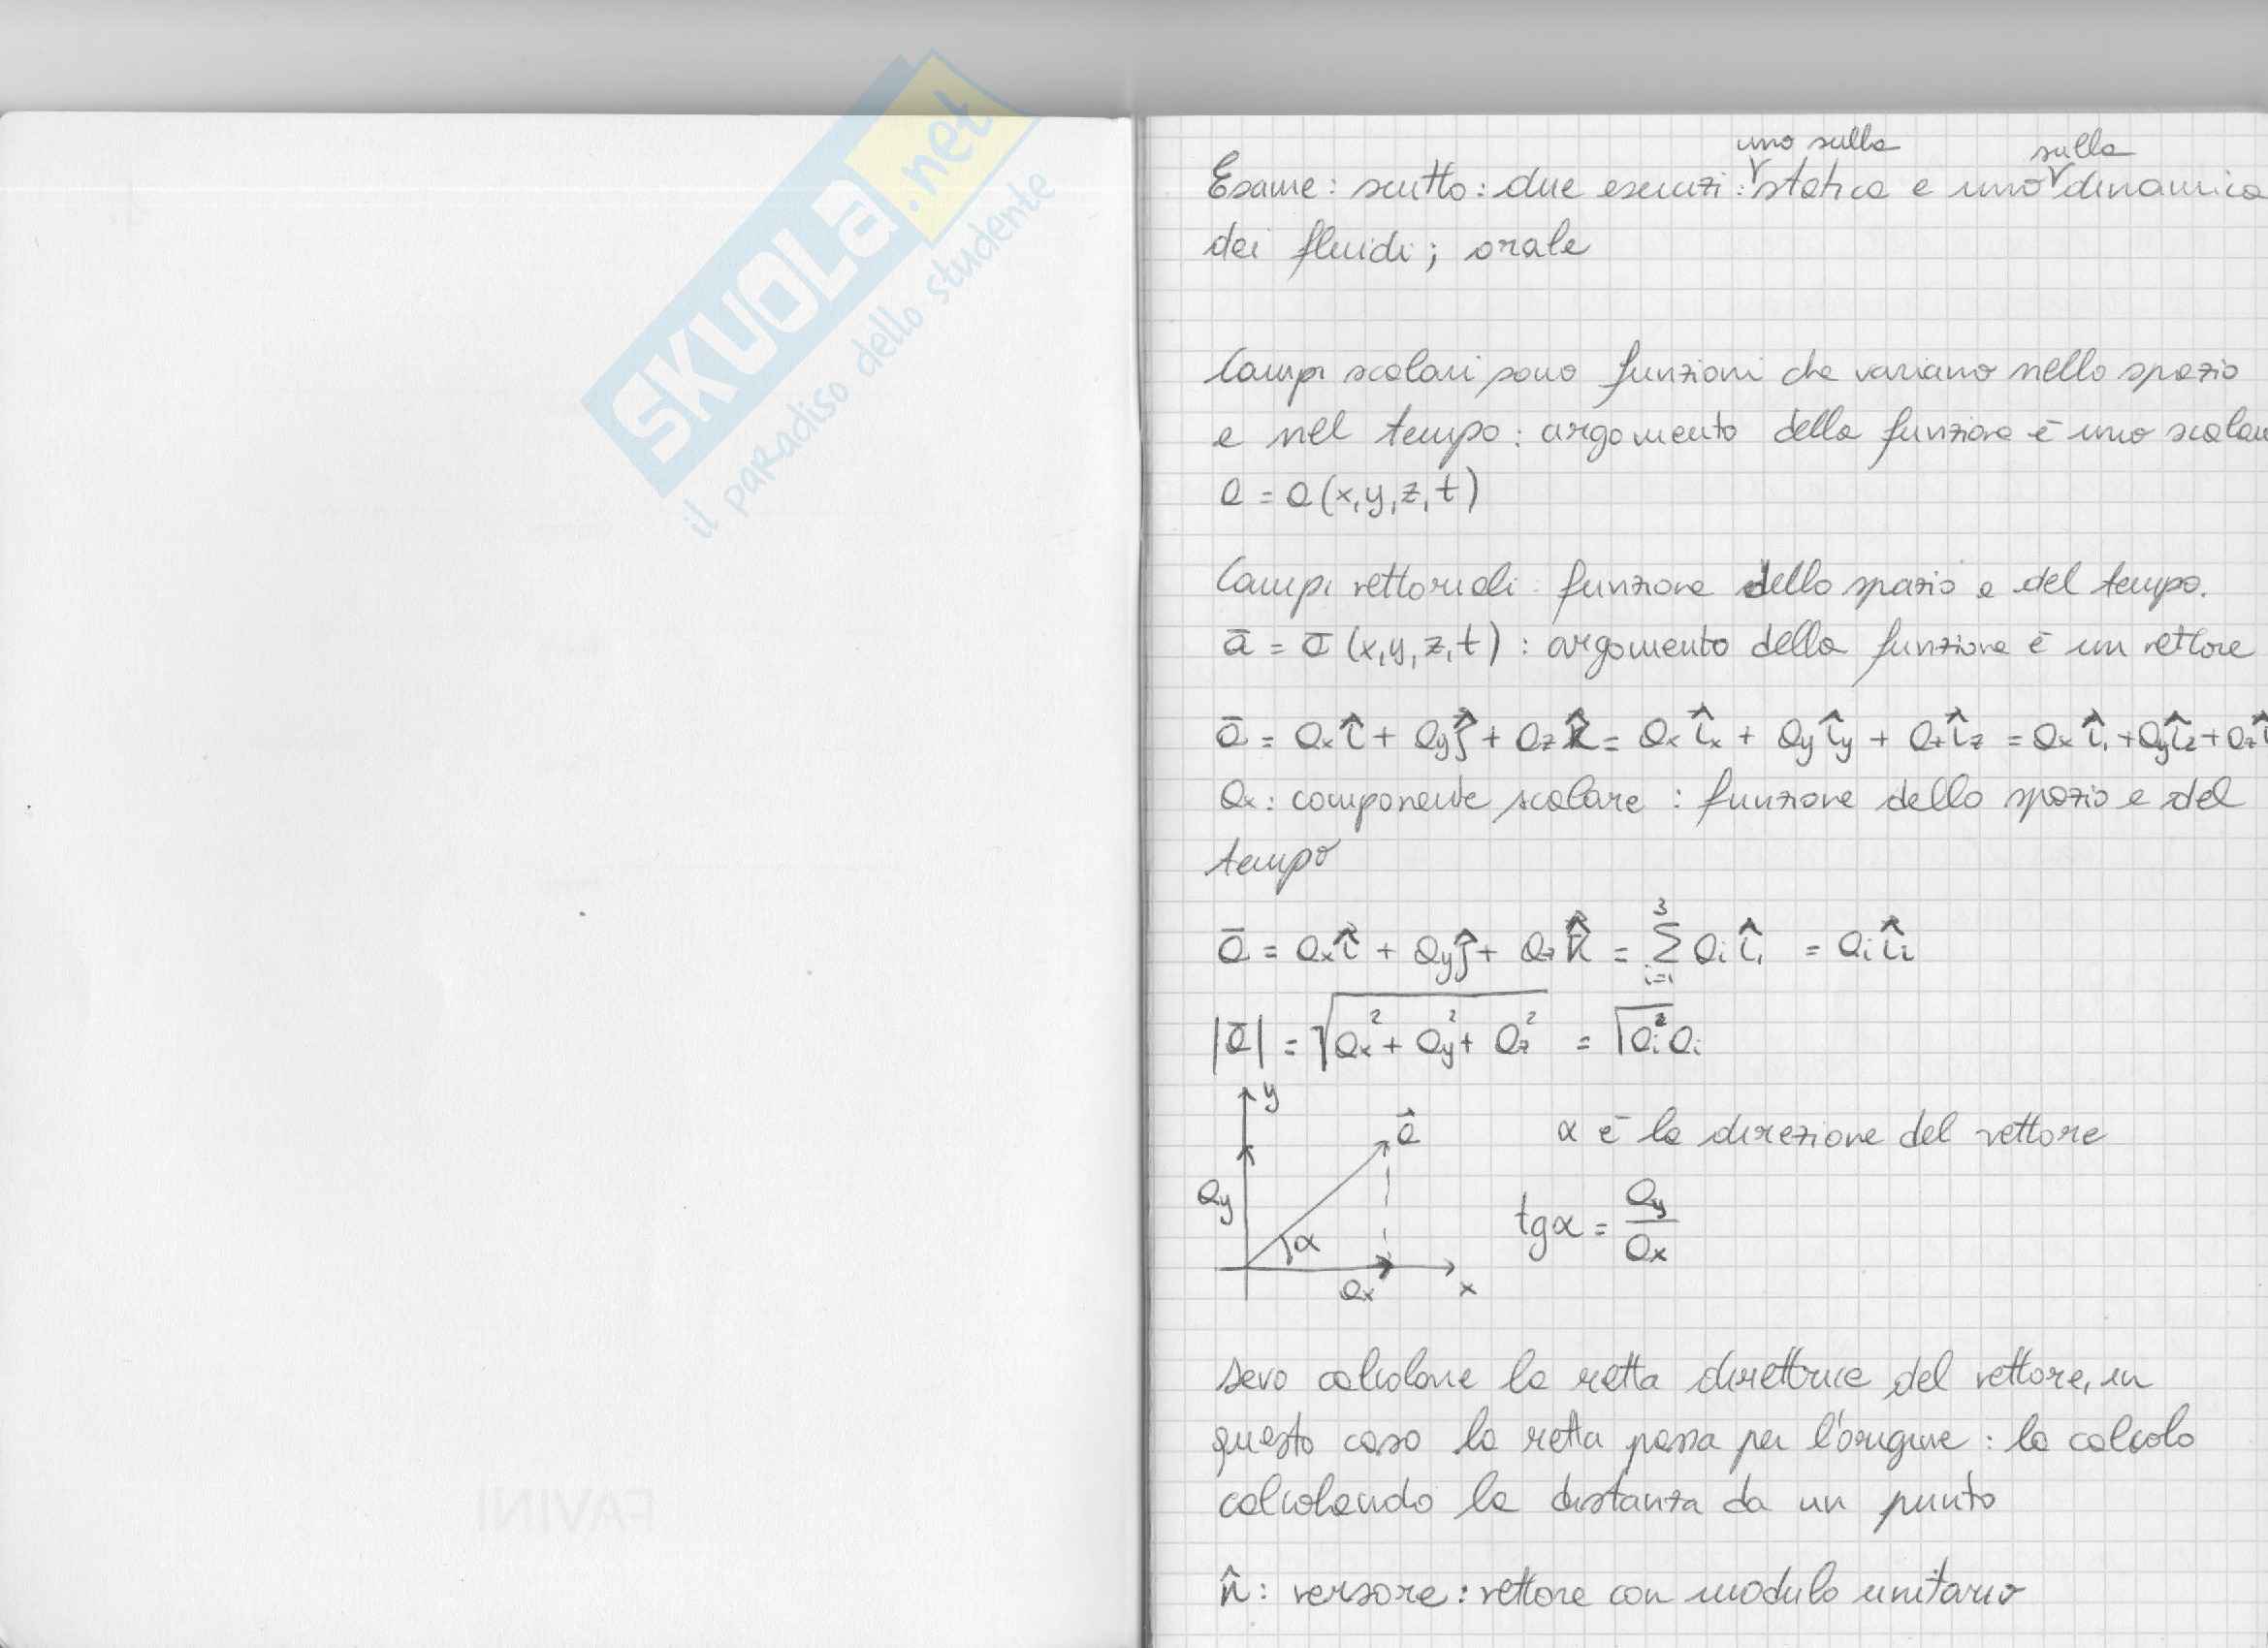 SKUOLA.net
il paradiso dello studente
uno sulla sulla
Esame: scritto: due esercizi: statica e uno dinamica
dei fluidi; orale
Campi scalari sono funzioni che variano nello spazio
e nel tempo: argomento della funzione è uno scalar
a = a(x,y,z,t)
Campi vettoriali: funzione dello spazio e del tempo.
ā = ā (x,y,z,t) : argomento della funzione è un vettore
ā = aₓî + a_yĵ + a_zk̂ = aₓîₓ + a_yî_y + a_zî_z = aₓî₁ + a_yî₂ + a_zî
aₓ: componente scalare : funzione dello spazio e del
tempo
ā = aₓî + a_yĵ + a_zk̂ = Σ³ᵢ₌₁ aᵢîᵢ = aᵢîᵢ
|ā| = √(aₓ² + a_y² + a_z²) = √aᵢ² aᵢ
y
a⃗
α è la direzione del vettore
a_y
α
tgα = a_y/aₓ
aₓ x
devo calcolare la retta direttrice del vettore, in
questo caso la retta passa per l'origine: la calcolo
calcolando la distanza da un punto
n̂: versore: vettore con modulo unitario
FAVINI